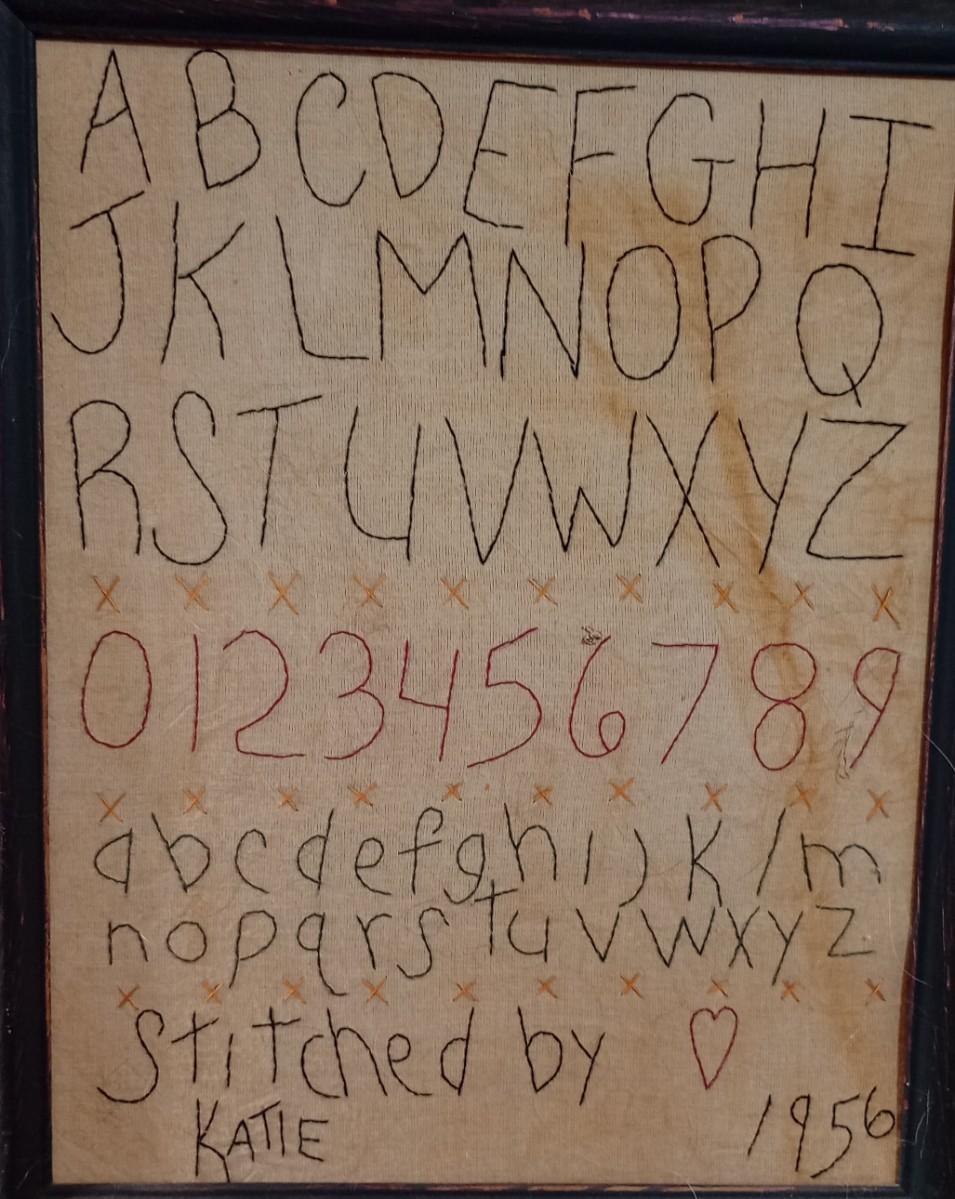 A B C D E F G H I
J K L M N O P Q
R S T U V W X Y Z
X X X X X X X X X X
0 1 2 3 4 5 6 7 8 9
X X X X X X X X X X
a b c d e f g h i j k l m
n o p q r s t u v w x y z
X X X X X X X X X X
Stitched by ♡
KATIE 1956